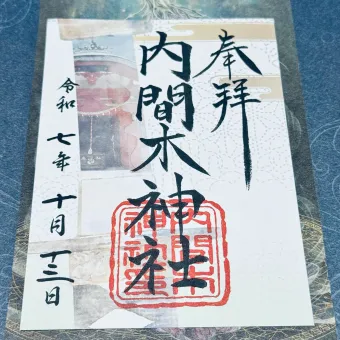 奉拝
内間木神社
令和七年十月十三日
内間木神社